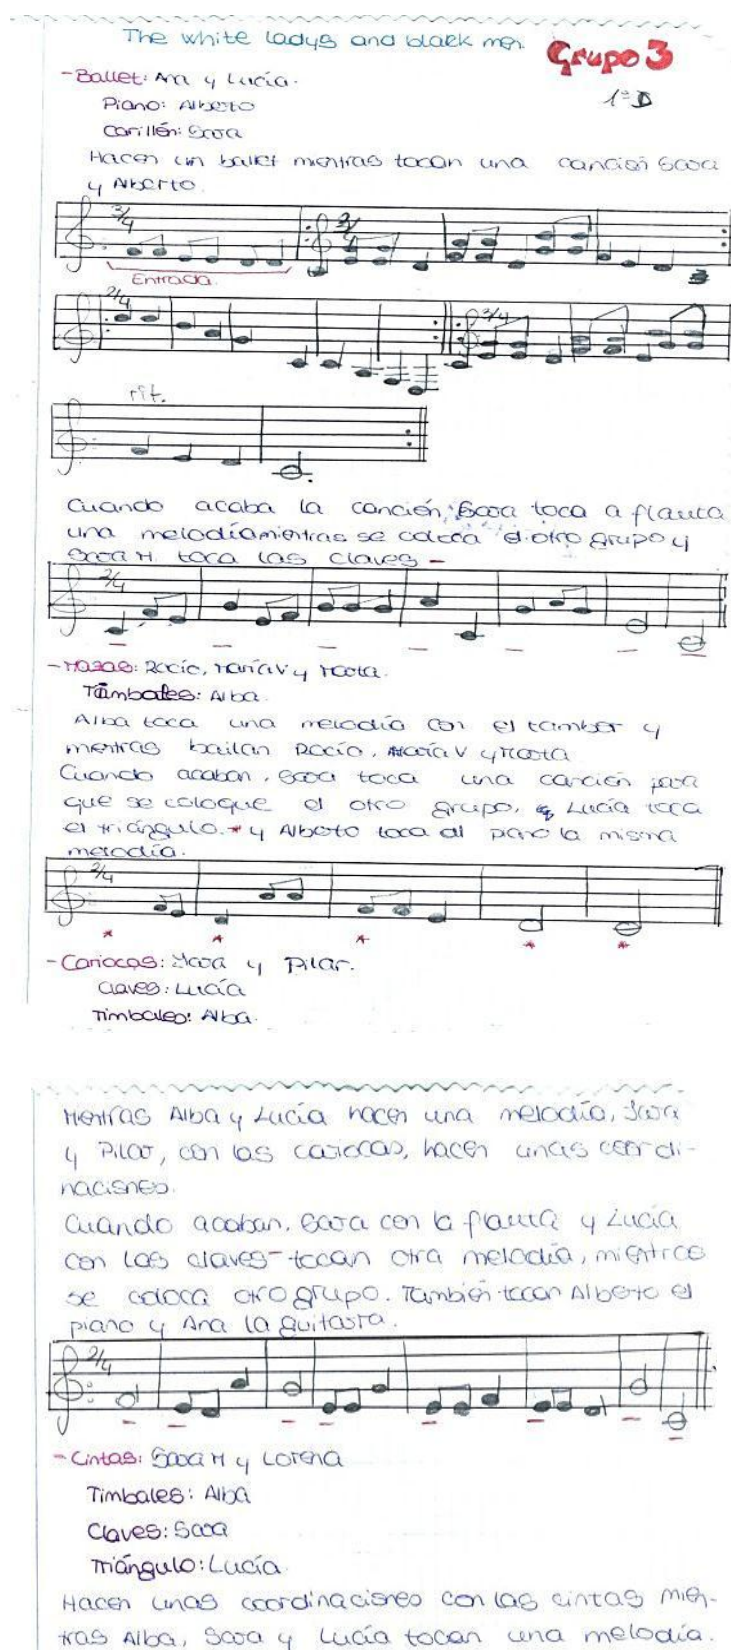 The white ladys and black men.
Grupo 3
1º D
-Ballet: Ana y Lucía.
Piano: Alberto
Carillón: Sara
Hacen un ballet mientras tocan una canción Sara
y Alberto.
3/4 3/4
Entrada.
2/4 3/4
rit.
Cuando acaba la canción, Sara toca a flauta
una melodía mientras se coloca el otro grupo y
Sara M. toca las claves -
2/4
-Mazas: Rocío, María V y Marta.
Timbales: Alba.
Alba toca una melodía con el tambor y
mentras bailan Rocío, María V y Marta
Cuando acaban, Sara toca una canción para
que se coloque el otro grupo, Lucía toca
el triángulo * y Alberto toca al piano la misma
melodía.
2/4
* * * * *
-Cariocas: Sara y Pilar.
Claves: Lucía
Timbales: Alba.
Mentras Alba y Lucía hacen una melodía, Sara
y Pilar, con las cariocas, hacen unas coordi-
naciones.
Cuando acaban, Sara con la flauta y Lucía
con las claves - tocan otra melodía, mientras
se coloca otro grupo. También tocan Alberto el
piano y Ana la guitarra.
2/4
-Cintas: Sara M y Lorena
Timbales: Alba
Claves: Sara
Triángulo: Lucía.
Hacen unas coordinaciones con las cintas mien-
tras Alba, Sara y Lucía tocan una melodía.